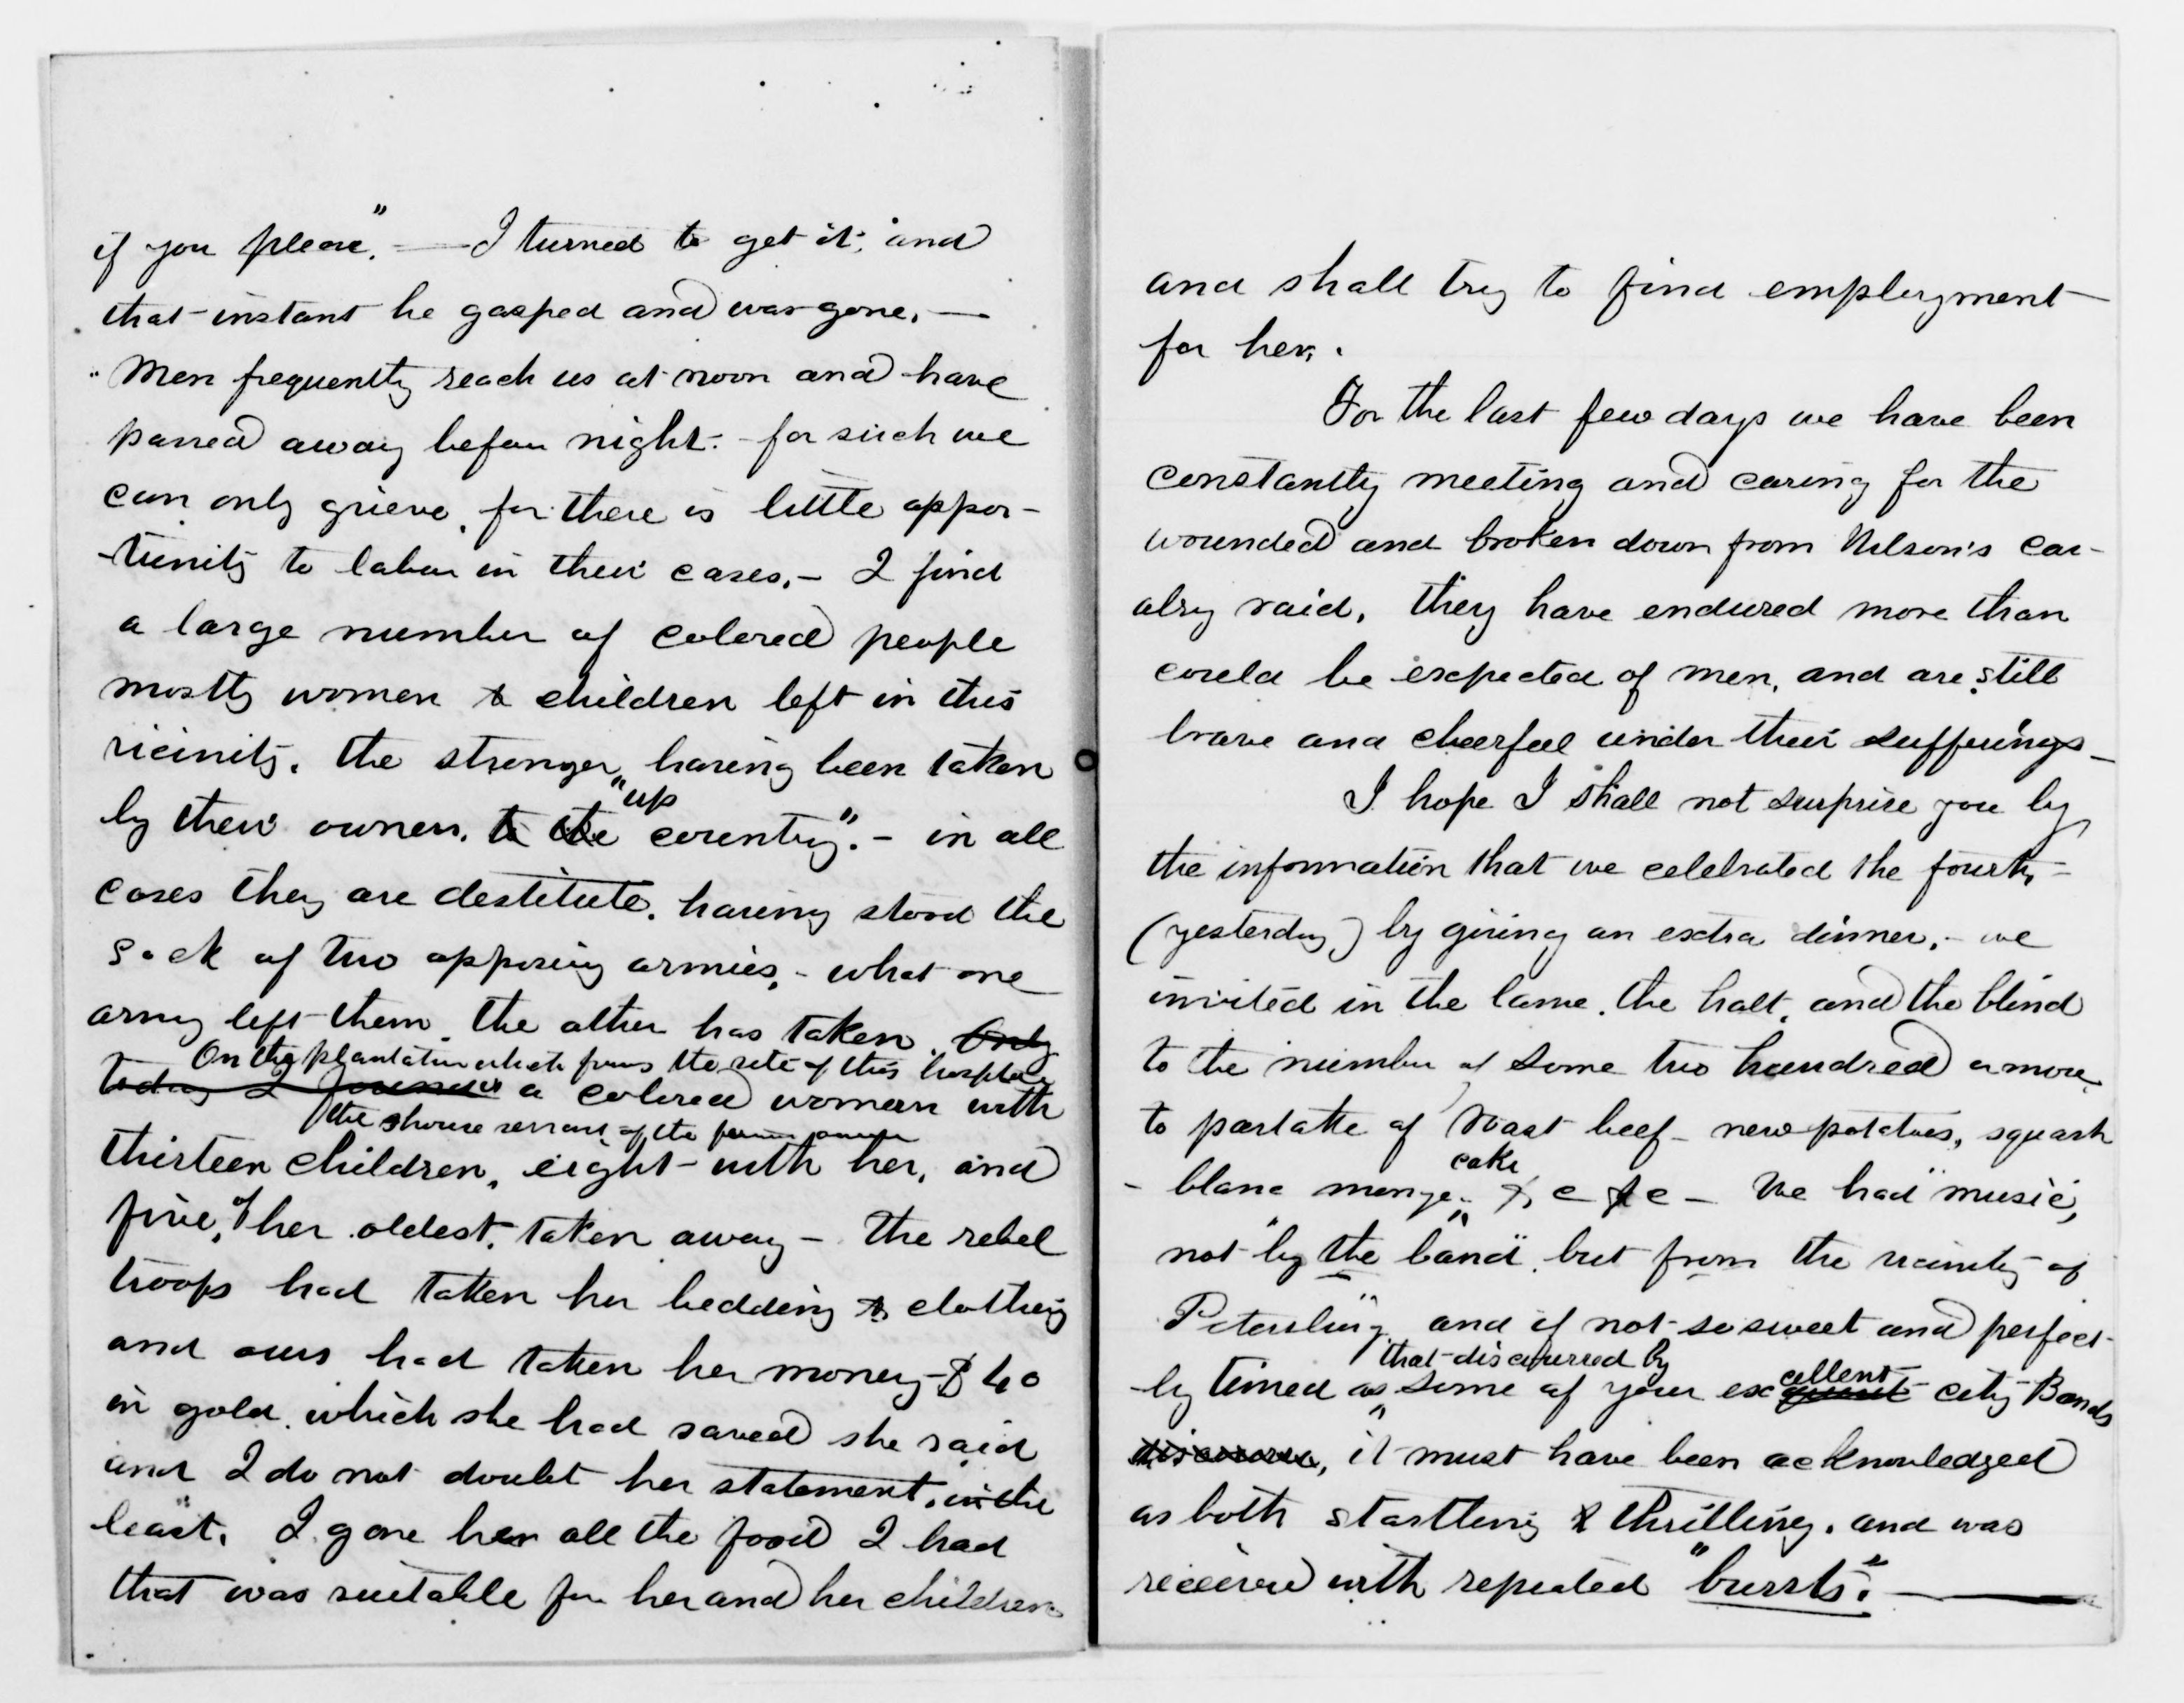 if you please". — I turned to get it, and
that instant he gasped and was gone. —
Men frequently reach us at noon and have
passed away before night. - for such we
can only grieve, for there is little oppor-
-tunity to labor in their cases. - I find
a large number of colored people
mostly women & children left in this
vicinity. the stronger having been taken
by their owners. to the "up country". - in all
cases they are destitute. having stood the
sack of two opposing armies. - what one
army left them the other has taken. Only
On the plantation which forms the site of this hospital
today I found a colored woman with
the house servant of the
thirteen children, eight with her, and
five, of her oldest, taken away - the rebel
troops had taken her bedding & clothing
and ours had taken her money - $40
in gold. which she had saved she said
and I do not doubt her statement. in the
least. I gave her all the food I had
that was suitable for her and her children
and shall try to find employment
for her.
For the last few days we have been
constantly meeting and caring for the
wounded and broken down from Wilson's cav-
alry raid. they have endured more than
could be expected of men, and are still
brave and cheerful under their sufferings -
I hope I shall not surprise you by
the information that we celebrated the fourth, -
(yesterday) by giving an extra dinner. - we
invited in the lame, the halt, and the blind
to the number of some two hundred or more
to partake of roast beef - new potatoes, squash
cake
- blanc mange & c & c - We had "music,
not "by the band", but from the vicinity of
Petersburg and if not so sweet and perfect-
that discoursed by
-ly timed as some of your excellent city Bands
discourse, it must have been acknowledged
as both startling & thrilling. and was
received with repeated "bursts". —